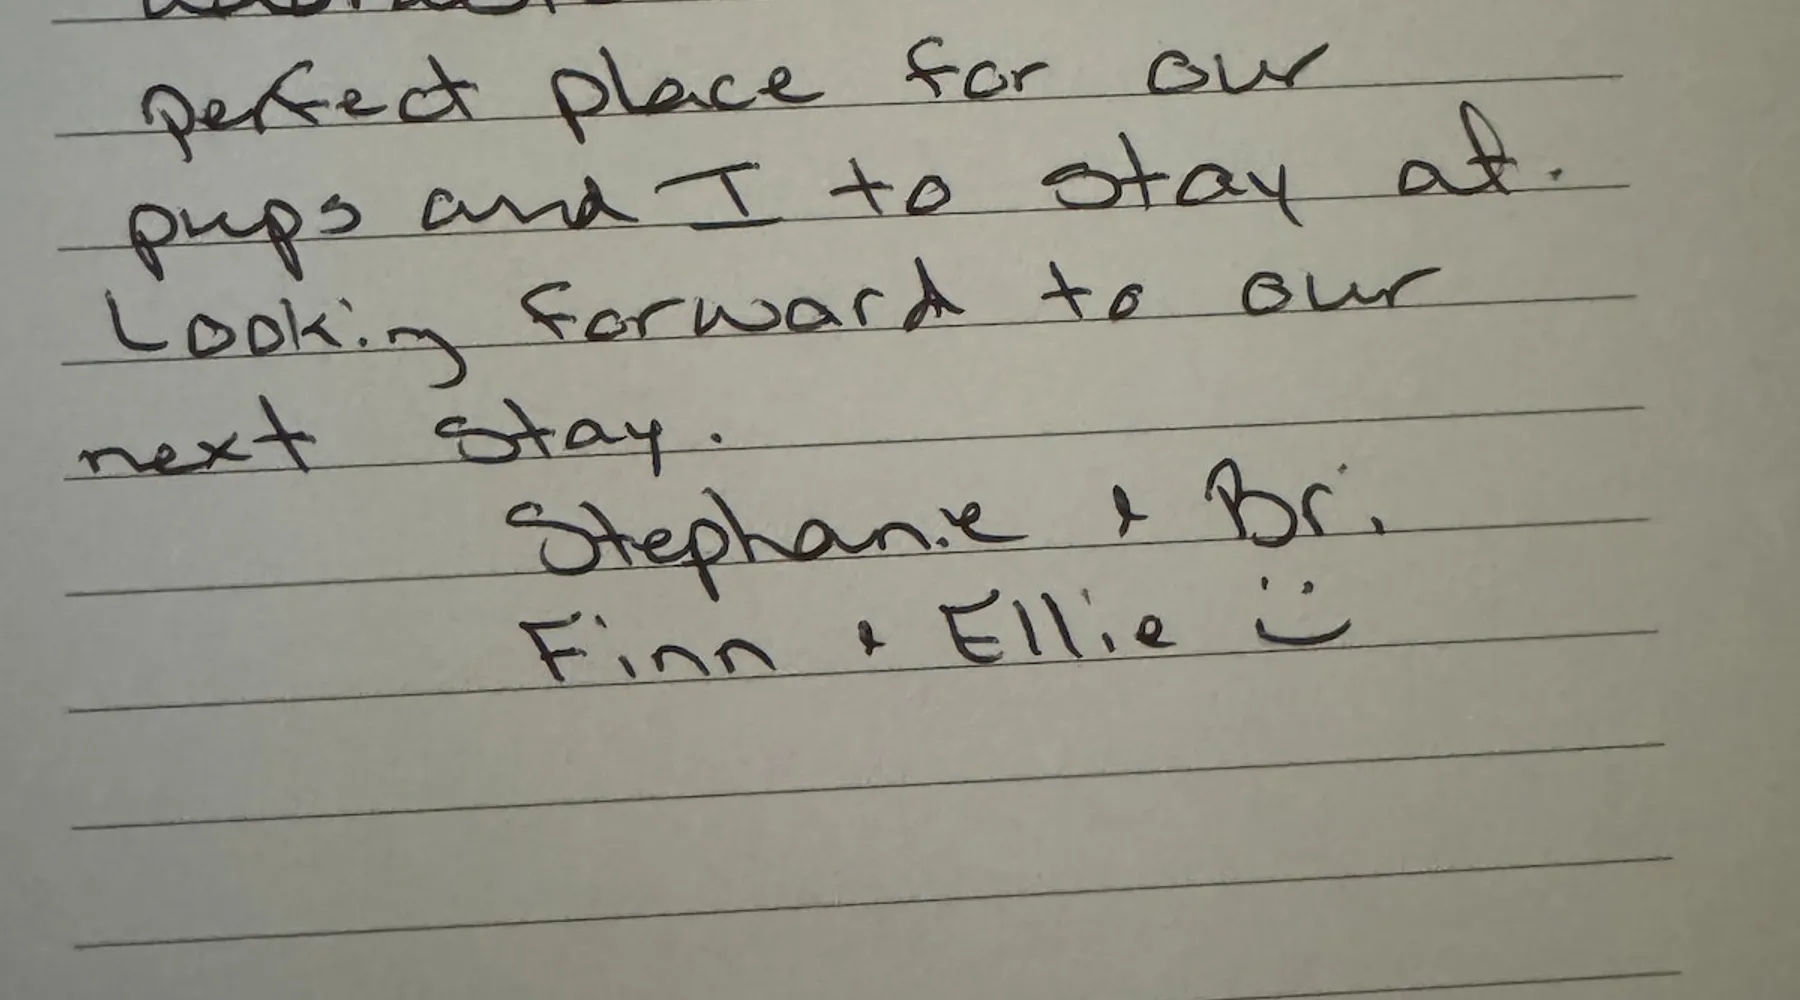 perfect place for our
pups and I to stay at.
Looking forward to our
next stay.
Stephanie & Bri
Finn & Ellie :)